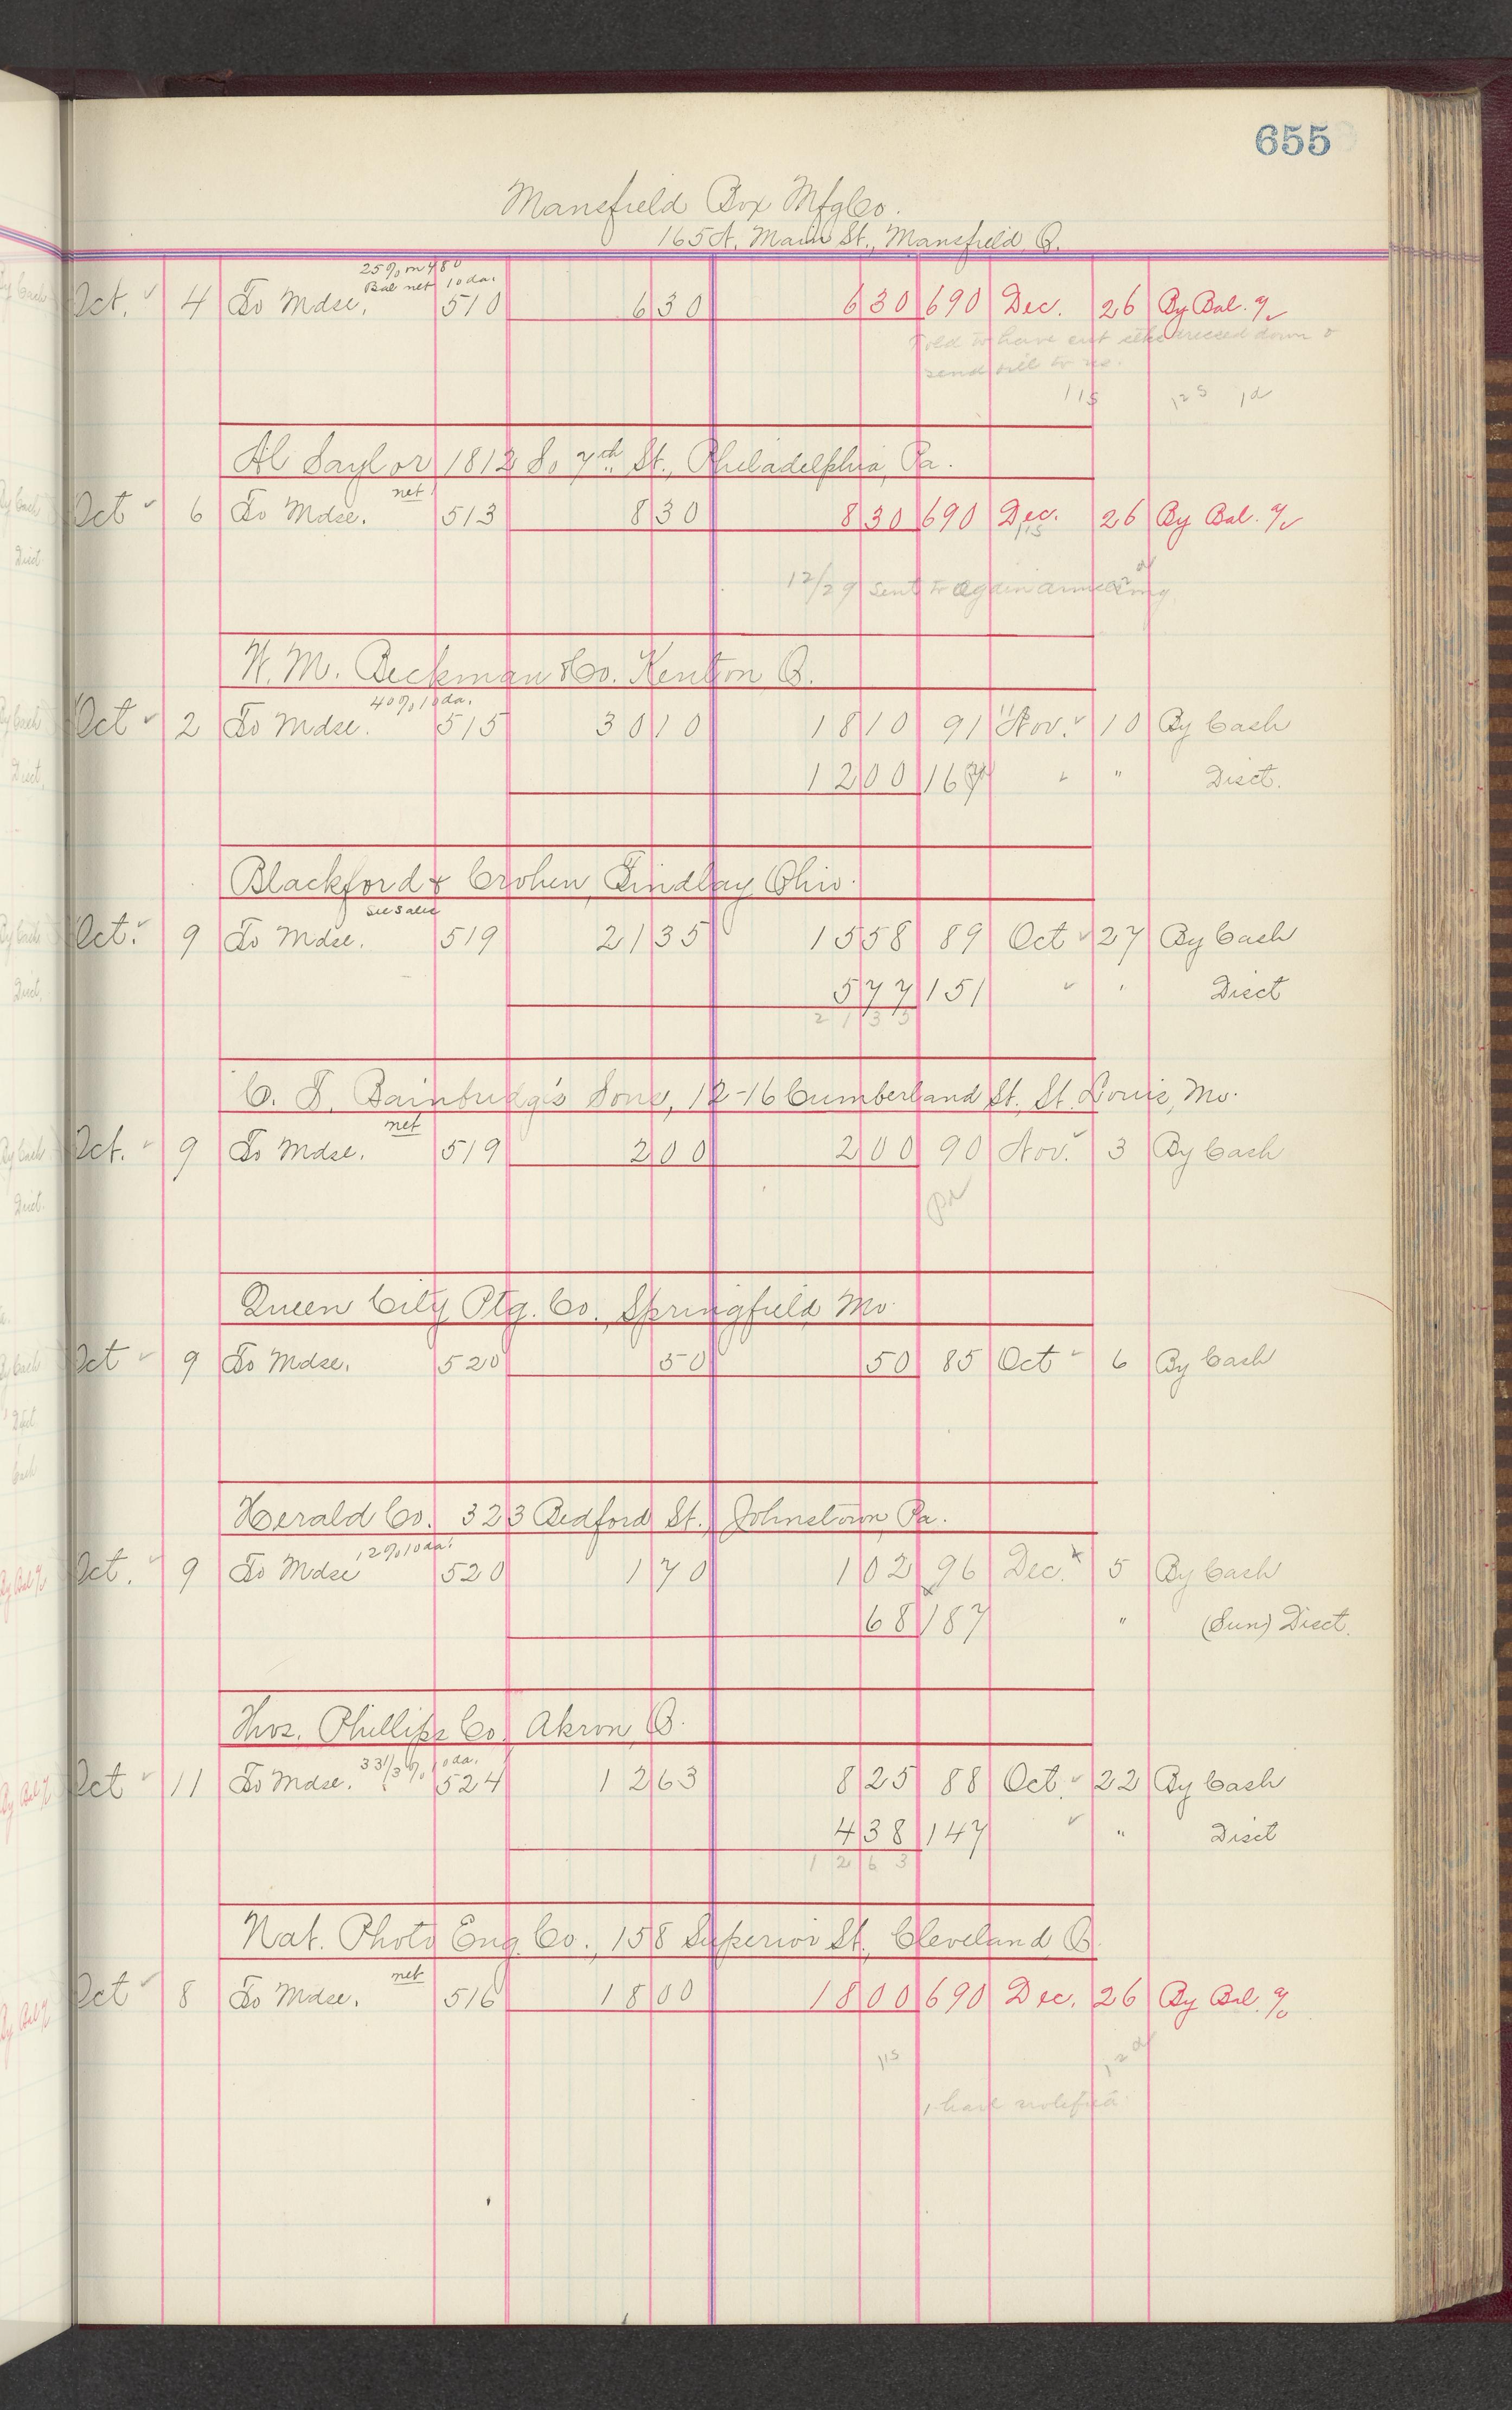 655
Mansfield Box Mfg Co.
165 N. Main St., Mansfield, O.
25% on 480
Bal net 10 da.
Oct. ✓ 4 To Mdse. 510 6 30 6 30 690 Dec. 26 By Bal. %
Told to have cut dressed down &
send bill to us.
115 125 1d
Al Saylor 1812 So 7th St., Philadelphia, Pa.
net
Oct ✓ 6 To Mdse. 513 8 30 8 30 690 Dec. 26 By Bal. %
115
12/29 sent to again
W. M. Beckman & Co. Kenton O.
40% 10 da.
Oct ✓ 2 To Mdse. 515 30 10 18 10 91 Nov. ✓ 10 By Cash
12 00 167 ✓ " Disct.
Blackford & Crohen, Findlay Ohio.
see sales
Oct. ✓ 9 To Mdse. 519 21 35 15 58 89 Oct ✓ 27 By Cash
5 77 151 ✓ " Disct
21 35
C. T. Bainbridge's Sons, 12-16 Cumberland St. St. Louis, Mo.
net
Oct. ✓ 9 To Mdse. 519 2 00 2 00 90 Nov. ✓ 3 By Cash
Pd
Queen City Ptg. Co., Springfield Mo.
Oct ✓ 9 To Mdse. 520 50 50 85 Oct ✓ 6 By Cash
Herald Co. 323 Bedford St., Johnstown, Pa.
12% 10 da.
Oct. ✓ 9 To Mdse 520 1 70 1 02 96 Dec. x 5 By Cash
68 187 " (Sun) Disct.
Thos. Phillips Co. Akron, O.
33 1/3 % 10 da.
Oct ✓ 11 To Mdse. 524 12 63 8 25 88 Oct. ✓ 22 By Cash
4 38 147 ✓ " Disct
12 63
Nat. Photo Eng. Co., 158 Superior St., Cleveland O.
net
Oct ✓ 8 To Mdse. 516 18 00 18 00 690 Dec. 26 By Bal. %
115 12d
have notified